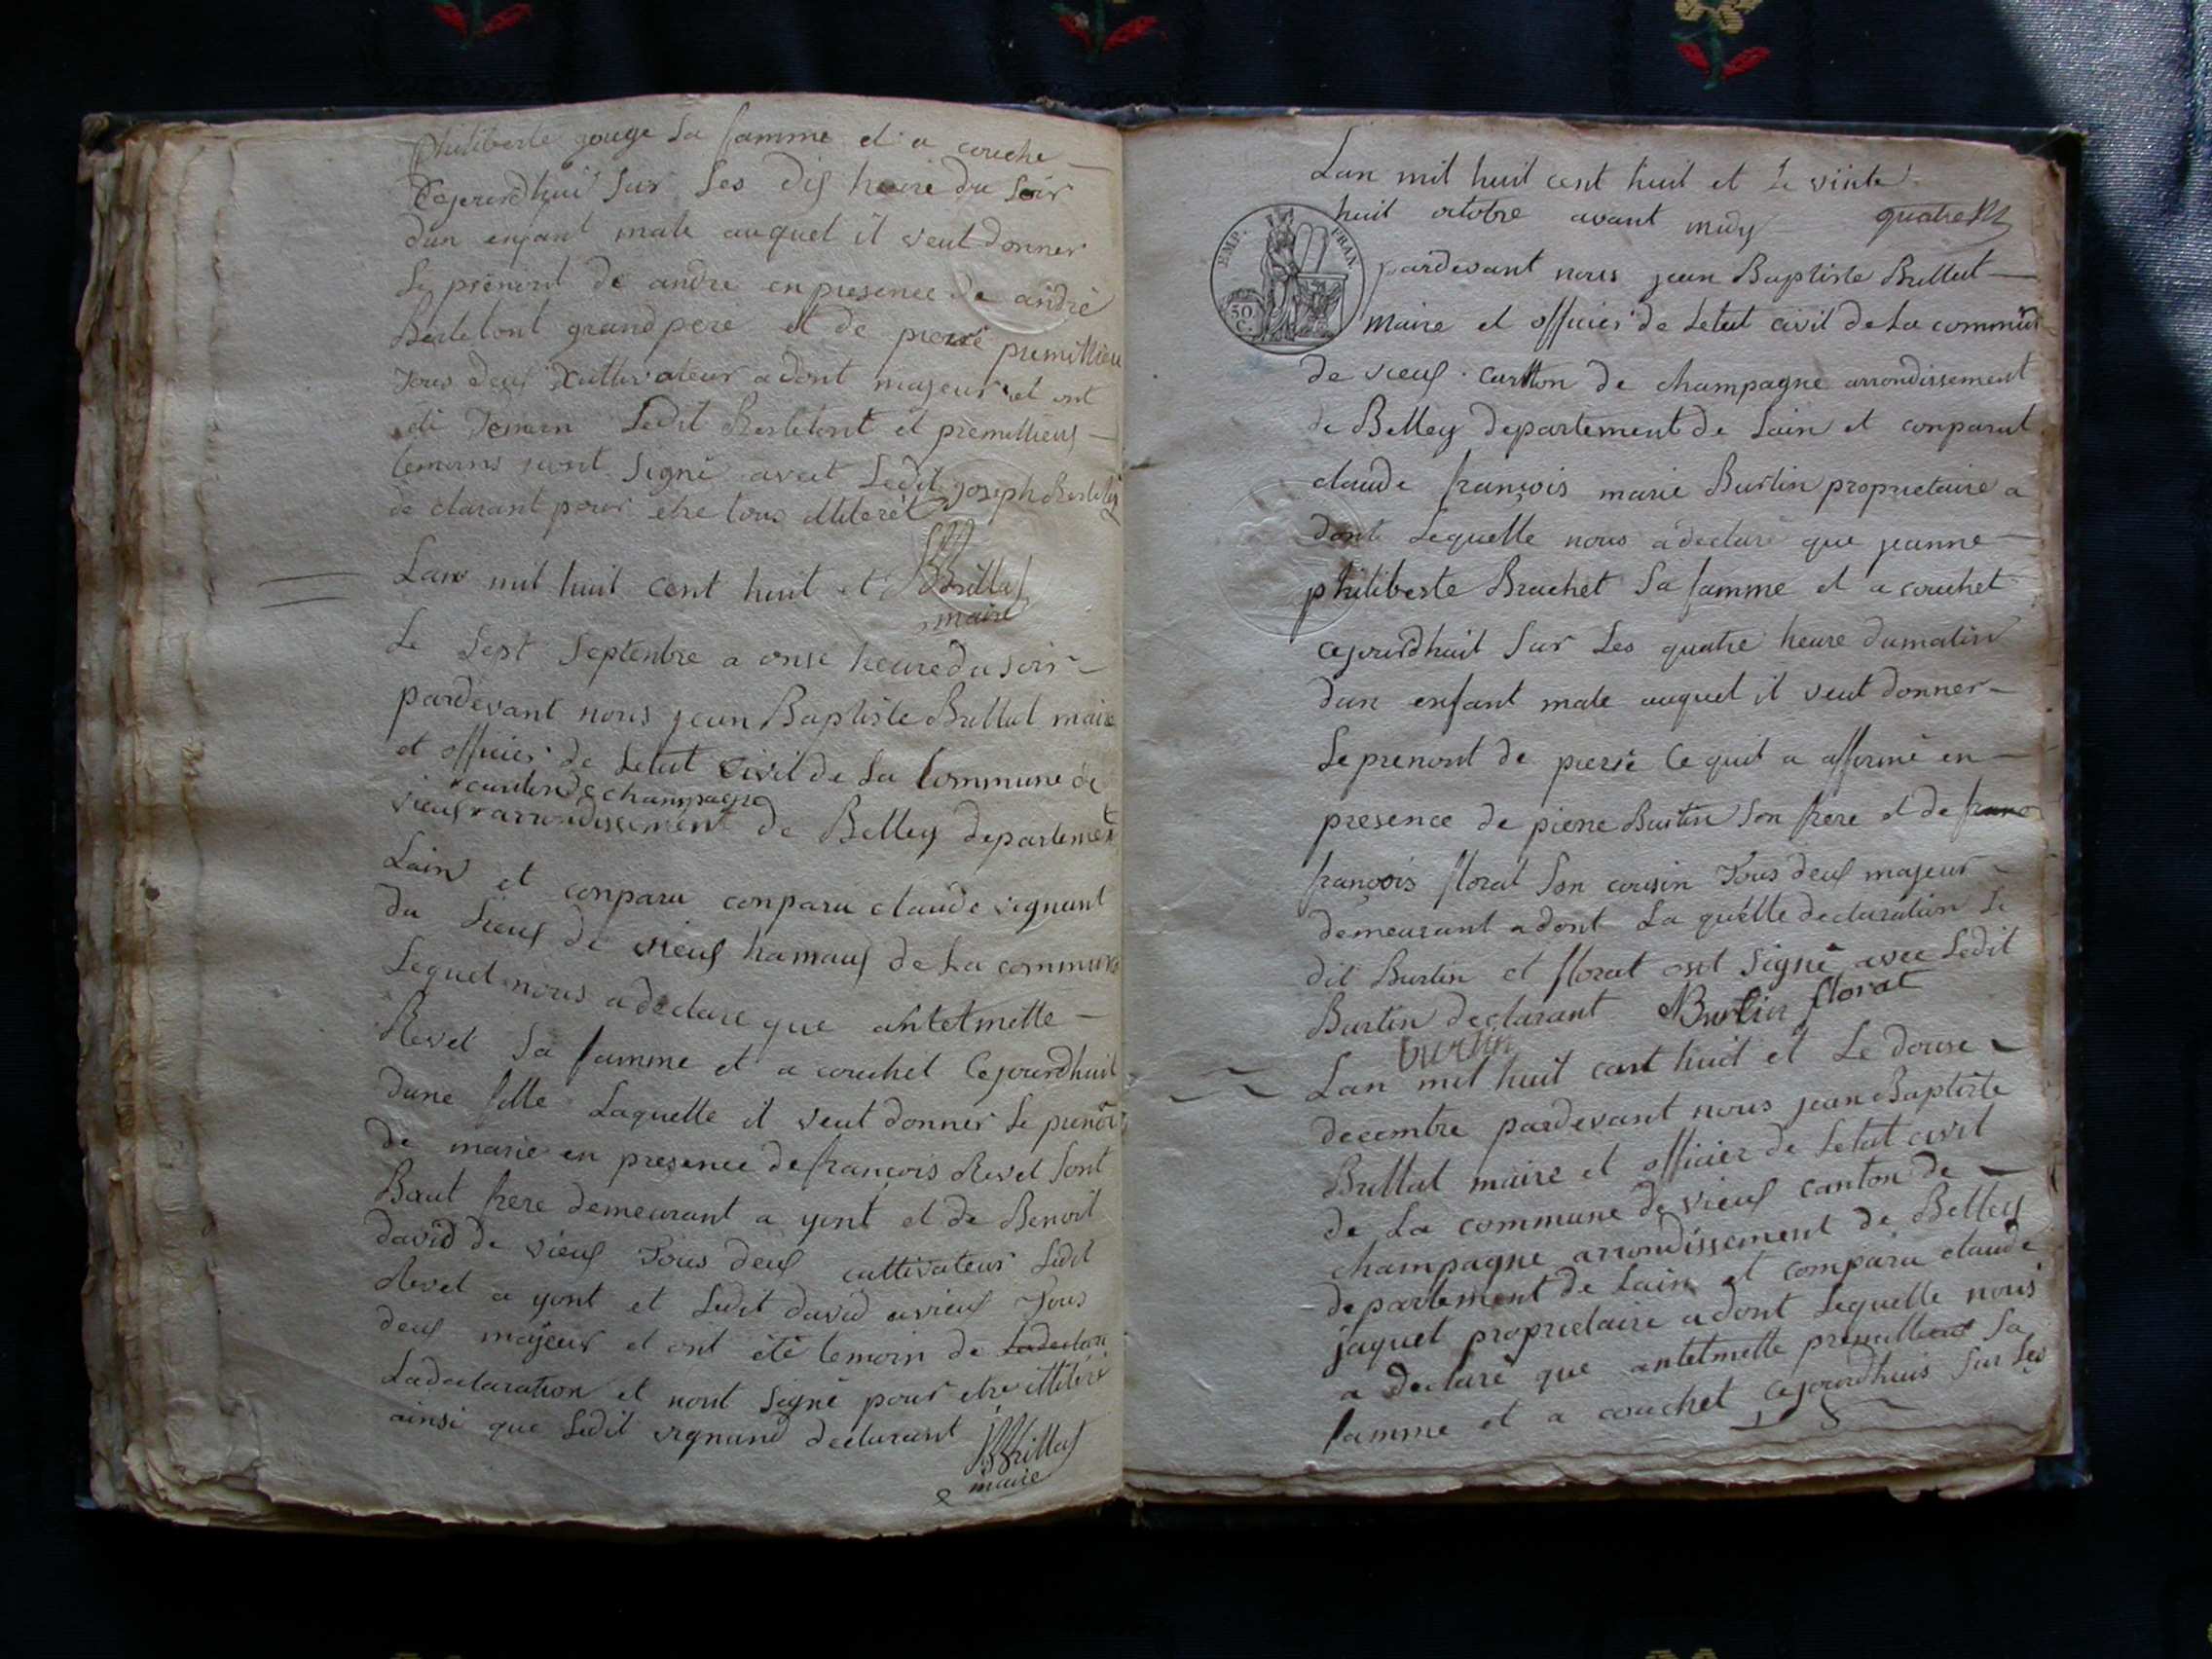 philiberte gouge sa famme et a couche
Cejourdhui sur les dis heure du soir
dun enfant male auquel il veut donner
le prenont de andre en presence de andré
Berletont grand pere et de pierre premillieu
Tous deux Cultivateur a dont majeur et ont
été Temoin Ledit Berletont et premillieux
temoins nont signé avect Ledit joseph
de clarant pour etre tous illiterét
JBBrillat
maire
Lan mil huit cent huit et
Le sept septenbre a onse heure du soir
pardevant nous jean Baptiste Brillat maire
et officier de Letat civil de La Commune de
canton de champagne
vieux arrondissement de Belley departement
Lain et conparu conparu claude vignant
du Lieux de vieux hamaux de La commune
Lequel nous a declare que antelmette
Revel sa famme et a couchet Cejourdhuit
dune fille Laquelle il veut donner le prenon
de marie en presence de francois Revel sont
Baut frere demeurant a yont et de Benoit
david de vieux Tous deux cultivateur Ledit
Revel a yont et Ledit david a vieux Tous
deux majeur et ont été temoin de Ladeclara
La declaration et nont signé pour etre illiteré
ainsi que Ledit vignand declarant
JBBrillat
maire
Lan mil huit cent huit et Le vinte
huit octobre avant midy
quatre
EMP. FRAN.
50 C.
pardevant nous jean Baptiste Brillat
Maire et officier de Letat civil de La commune
de vieux canton de champagne arrondissement
de Belley departement de Lain et conparut
claude françois marie Burtin proprietaire a
dont Lequelle nous a declaré que jeanne
philiberte Brachet sa famme et a couchet
cejourdhuit sur Les quatre heure du matin
dun enfant male auquel il veut donner
Le prenont de pierre Ce quil a affirmé en
presence de pierre Burtin son frere et de franc
francois florat son cousin Tous deux majeur
demeurant a dont La quelle declaration Le
dit Burtin et florat ont signé avec Ledit
Burtin declarant Burtin florat
burtin
Lan mil huit cent huit et Le douse
decembre pardevant nous jean Baptiste
Brillat maire et officier de Letat civil
de La commune de vieux canton de
champagne arrondissement de Belley
departement de Lain et comparu claude
jaquet proprietaire a dont Lequelle nous
a declaré que antelmette premillieux sa
famme et a couchet Cejourdhuis sur Les